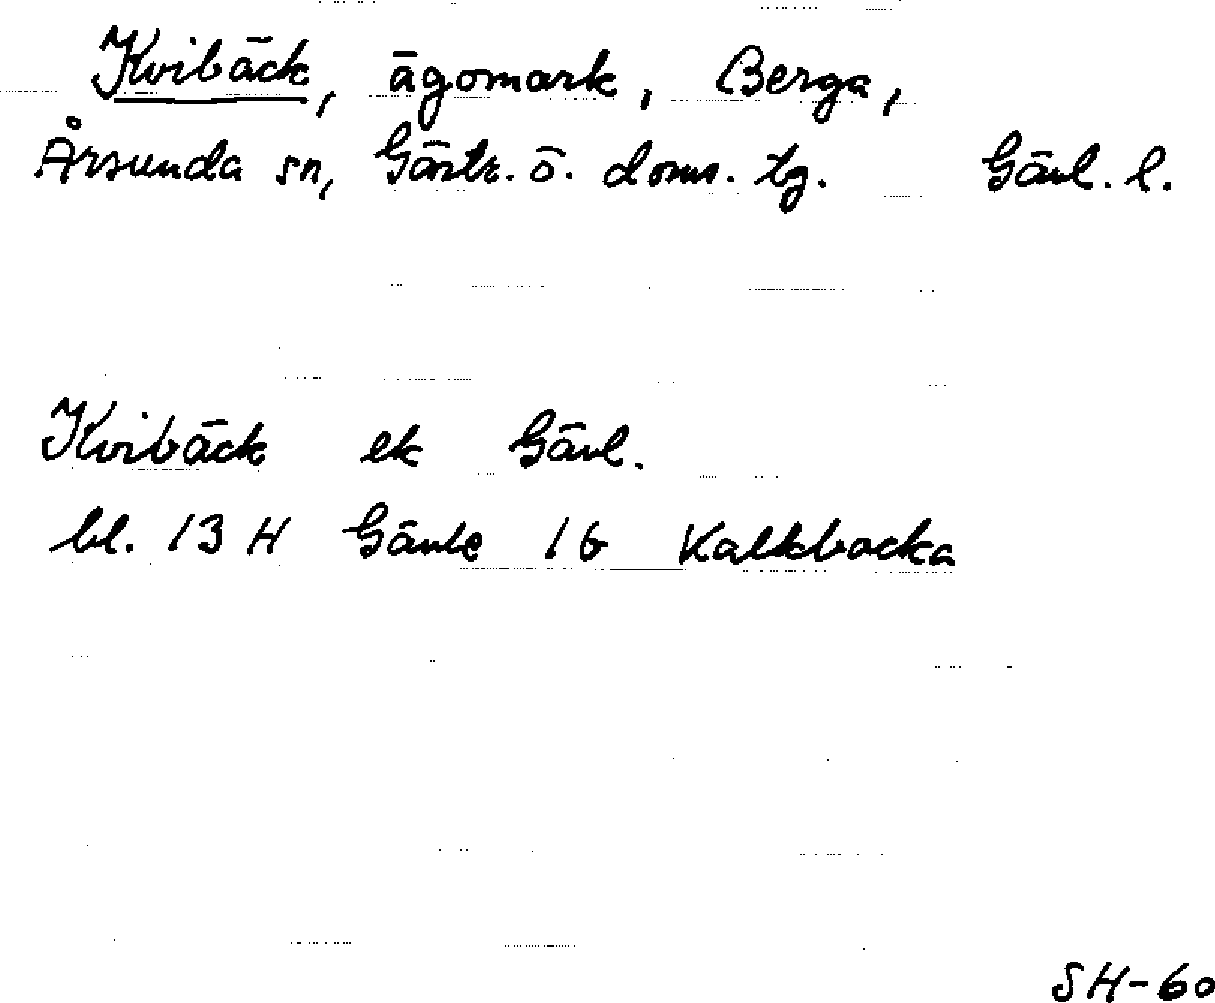 Kvibäck, ägomark, Berga,
Årsunda sn, Gästr. ö. doms. tg. Gävl. l.
Kvibäck ek Gävl.
bl. 13 H Gävle 1 b Kalkbacka
SH-60